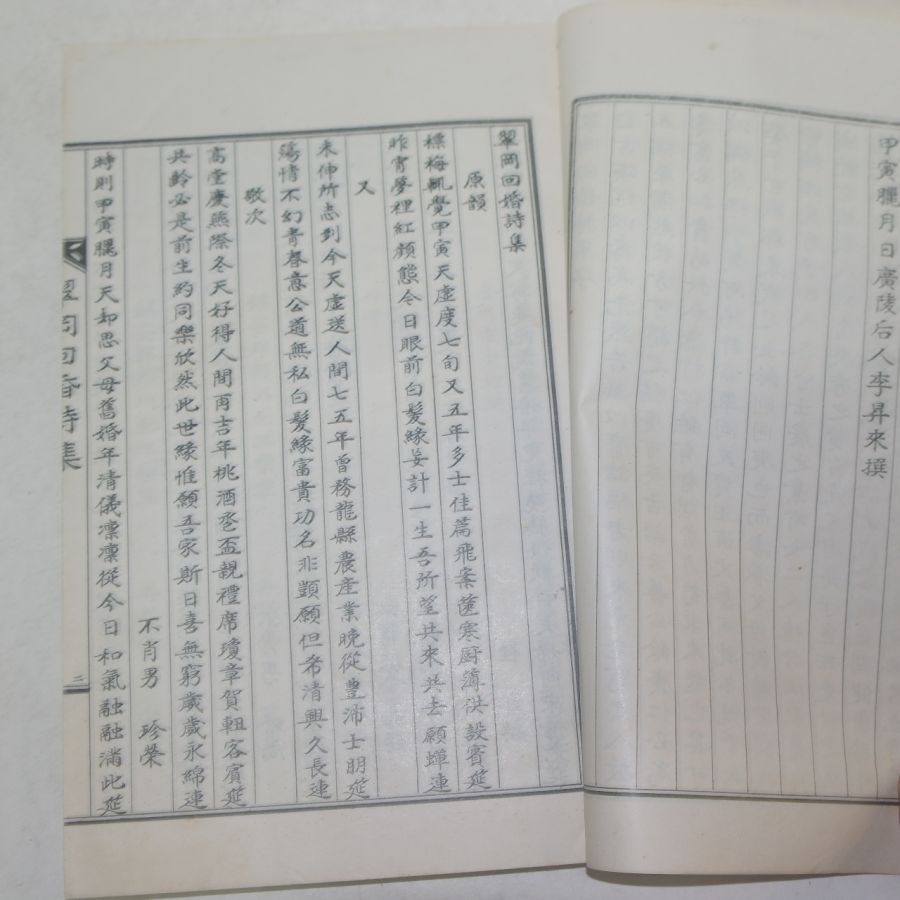 甲寅臘月日廣陵后人李昇來撰
翠岡回婚詩集
原韻
標梅輒覺甲寅天虛度七旬又五年多士佳篇飛案篋寒厨薄供設賓筵
昨宵夢裡紅顔態今日眼前白髮緣妄計一生吾所望共來共去願蟬連
又
未伸所志到今天虛送人間七五年曾務龍縣農産業晩從豊沛士朋筵
蕩情不幻青春意公道無私白髮緣富貴功名非顕願但希清興久長連
敬次
高堂慶燕際冬天好得人間再吉年桃酒卺盃親禮席瓊章賀客賓筵
共齡必是前生約同樂欣然此世緣惟願吾家斯日喜無窮歲歲永綿連
不肖男 珍榮
時則甲寅臘月天却思父母舊婚年清儀凜凜從今日和氣融融滿此筵
翠岡回婚詩集
二